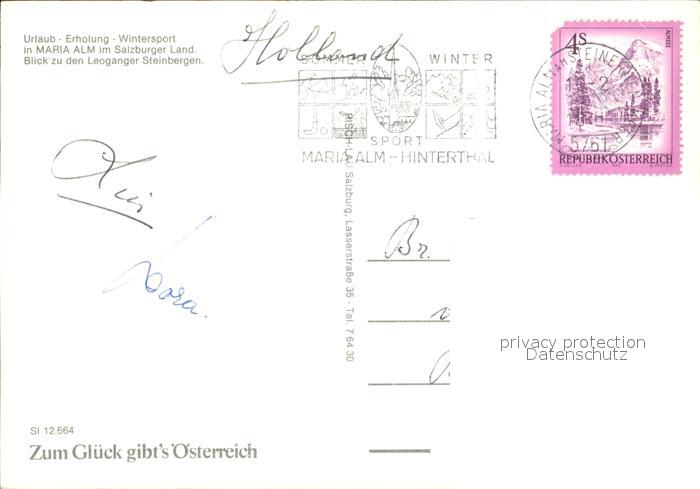 Urlaub - Erholung - Wintersport
in MARIA ALM im Salzburger Land.
Blick zu den Leoganger Steinbergen.
Holland
SOMMER WINTER
SPORT
MARIA ALM - HINTERTHAL
4S
ALMSEE
5761
REPUBLIK ÖSTERREICH
RISCH-LAU Salzburg, Lasserstraße 35 - Tel. 7 64 30
Dora.
Br.
privacy protection
Datenschutz
SI 12.664
Zum Glück gibt's Österreich